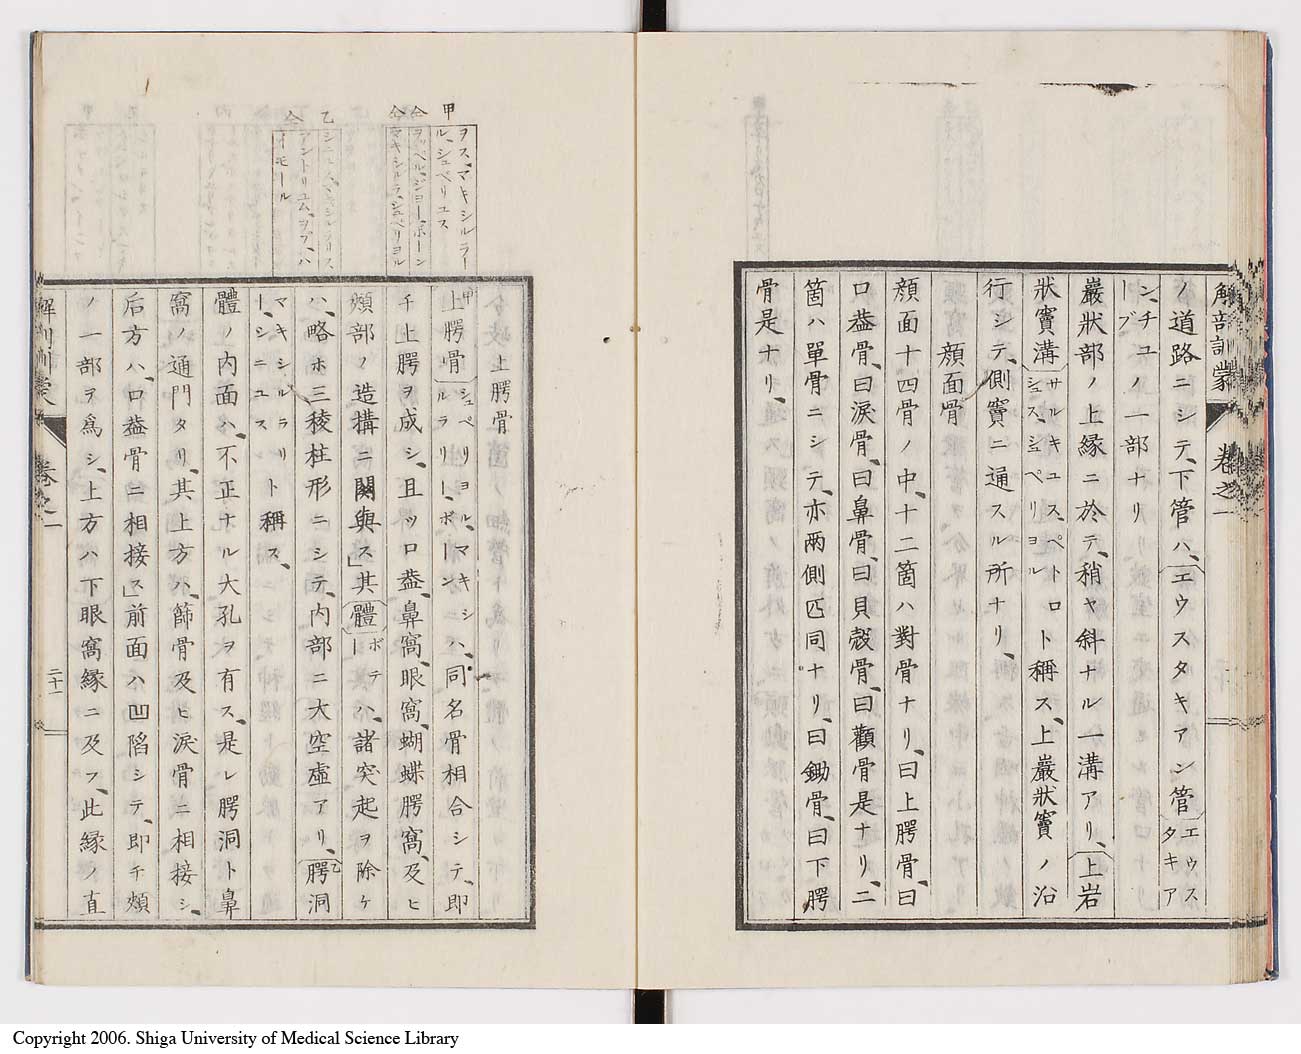 解剖訓蒙
巻之一
ノ道路ニシテ、下管ハ、エウスタキアン管エウスタキア
ン、チユーブノ一部ナリ
巖狀部ノ上緣ニ於テ、稍ヤ斜ナル一溝アリ、上岩
狀竇溝サルキユス、ペトロシュス、シュペリヨルト稱ス、上巖狀竇ノ沿
行シテ、側竇ニ通スル所ナリ、
顏面骨
顏面十四骨ノ中、十二箇ハ對骨ナリ、曰上腭骨、曰
口葢骨、曰淚骨、曰鼻骨、曰貝殼骨、曰顴骨是ナリ、二
箇ハ單骨ニシテ、亦兩側匹同ナリ、曰鋤骨、曰下腭
骨是ナリ、
甲
ヲス、マキシルラー
ル、シュペリユス
仝
ヲッペル、ジョー、ボーン
仝
マキシルラ、シュペリヨル
乙
シニユス、マキシルラリス
仝
アントリュム、ヲフ、ハ
イモール
上腭骨
甲
上腭骨シュペリヨル、マキシルラリー、ボーンハ、同名骨相合シテ、即
チ上腭ヲ成シ、且ツ口葢、鼻窩、眼窩、蝴蝶腭窩、及ヒ
頰部ノ造構ニ關與ス」其體ボテーハ、諸突起ヲ除ケ
ハ、略ホ三稜柱形ニシテ、內部ニ大空虛アリ、腭洞
乙
マキシルラリー、シニユスト稱ス、
體ノ內面ハ、不正ナル大孔ヲ有ス、是レ腭洞ト鼻
窩ノ通門タリ、其上方ハ、篩骨及ヒ淚骨ニ相接シ、
后方ハ、口葢骨ニ相接ス」前面ハ凹陷シテ、即チ頰
ノ一部ヲ爲シ、上方ハ下眼窩緣ニ及フ、此緣ノ直
巻之一
二十二
Copyright 2006. Shiga University of Medical Science Library